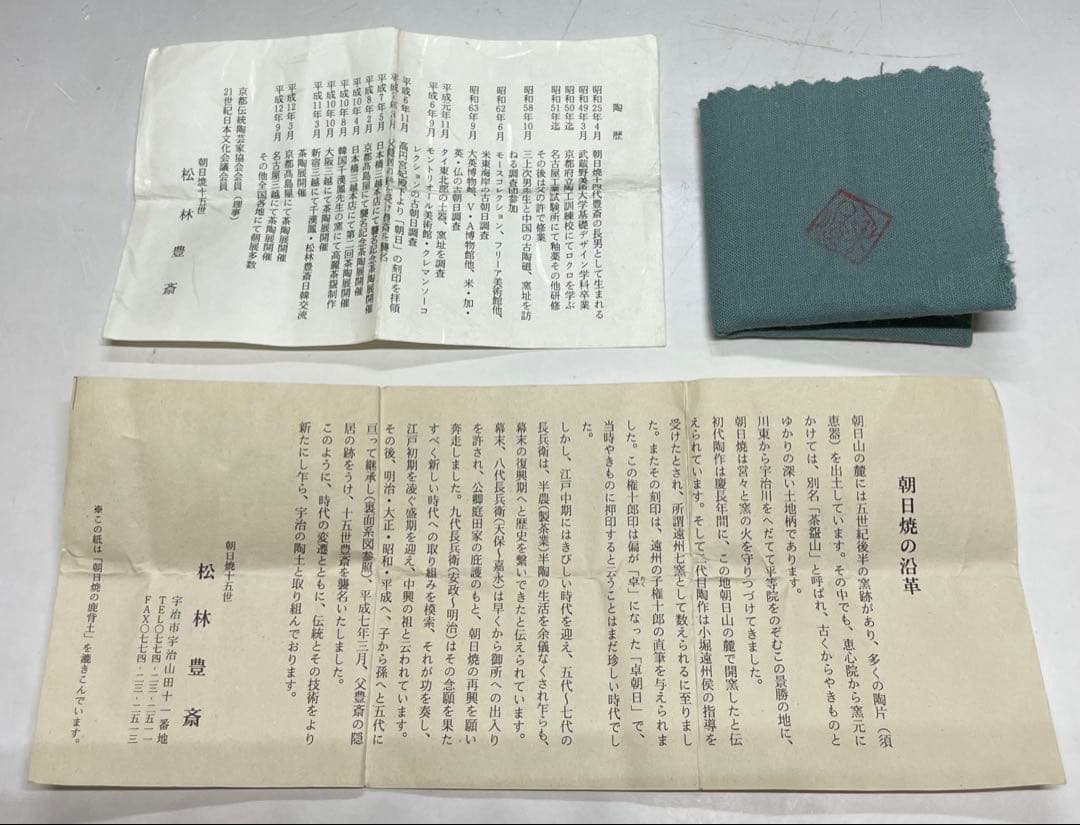 陶歴
昭和25年4月 朝日焼十四代豊斎の長男として生まれる
昭和49年3月 武蔵野美術大学基礎デザイン学科卒業
昭和50年迄 京都府立陶工訓練校にてロクロを学ぶ
昭和51年迄 名古屋工業試験所にて釉薬その他研修
その後は父の許で修業
昭和58年10月 三上次男先生と中国の古陶磁、窯址を訪
ねる調査団参加
昭和62年6月 モースコレクション、フリーア美術館他、
米東海岸の古朝日調査
昭和63年9月 大英博物館、V・A博物館他、米・加・
英・仏の古朝日調査
平成元年11月 タイ東北部の土器、窯址を調査
平成6年9月 モントリオール美術館・クレマンソーコ
レクションの古朝日調査
平成6年11月 高円宮妃殿下より「朝日」の刻印を拝領
父豊斎の
平成7年5月 日本橋三越本店にて襲名記念茶陶展開催
平成8年2月 京都髙島屋にて襲名記念茶陶展開催
平成10年4月 日本橋三越本店にて第二回茶陶展開催
平成10年8月 韓国千漢鳳先生の窯にて高麗茶盌制作
平成10年10月 大阪三越にて茶陶展開催
平成11年3月 新宿三越にて千漢鳳・松林豊斎日韓交流
茶陶展開催
平成12年3月 京都髙島屋にて茶陶展開催
平成12年9月 名古屋三越にて茶陶展開催
その他全国各地にて個展多数
京都伝統陶芸家協会会員(理事)
21世紀日本文化会議会員
朝日焼十五世
松林豊斎
朝日焼の沿革
朝日山の麓には五世紀後半の窯跡があり、多くの陶片(須
恵器)を出土しています。その中でも、恵心院から窯元に
かけては、別名「茶盌山」と呼ばれ、古くからやきものと
ゆかりの深い土地柄であります。
川東から宇治川をへだてて平等院をのぞむこの景勝の地に、
朝日焼は営々と窯の火を守りつづけてきました。
初代陶作は慶長年間に、この地朝日山の麓で開窯したと伝
えられています。そして二代目陶作は小堀遠州侯の指導を
受けたとされ、所謂遠州七窯として数えられるに至りまし
た。またその刻印は、遠州の子権十郎の直筆を与えられま
した。この権十郎印は偏が「卓」になった「卓朝日」で、
当時やきものに押印すると云うことはまだ珍しい時代でし
た。
しかし、江戸中期にはきびしい時代を迎え、五代〜七代の
長兵衛は、半農(製茶業)半陶の生活を余儀なくされ乍らも、
幕末の復興期へと歴史を繋いできたと伝えられています。
幕末、八代長兵衛(天保〜嘉永)は早くから御所への出入り
を許され、公卿庭田家の庇護のもと、朝日焼の再興を願い
奔走しました。九代長兵衛(安政〜明治)はその念願を果た
すべく新しい時代への取り組みを模索、それが功を奏し、
江戸初期を凌ぐ盛期を迎え、中興の祖と云われています。
その後、明治・大正・昭和・平成へ、子から孫へと五代に
亘って継承し(裏面系図参照)、平成七年三月、父豊斎の隠
居の跡をうけ、十五世豊斎を襲名いたしました。
このように、時代の変遷とともに、伝統とその技術をより
新たにし乍ら、宇治の陶土と取り組んでおります。
朝日焼十五世
松林豊斎
宇治市宇治山田十一番地
TEL〇七七四-二三-二五一一
FAX〇七七四-二三-二五一三
※この紙は「朝日焼の鹿背土」を漉きこんでいます。